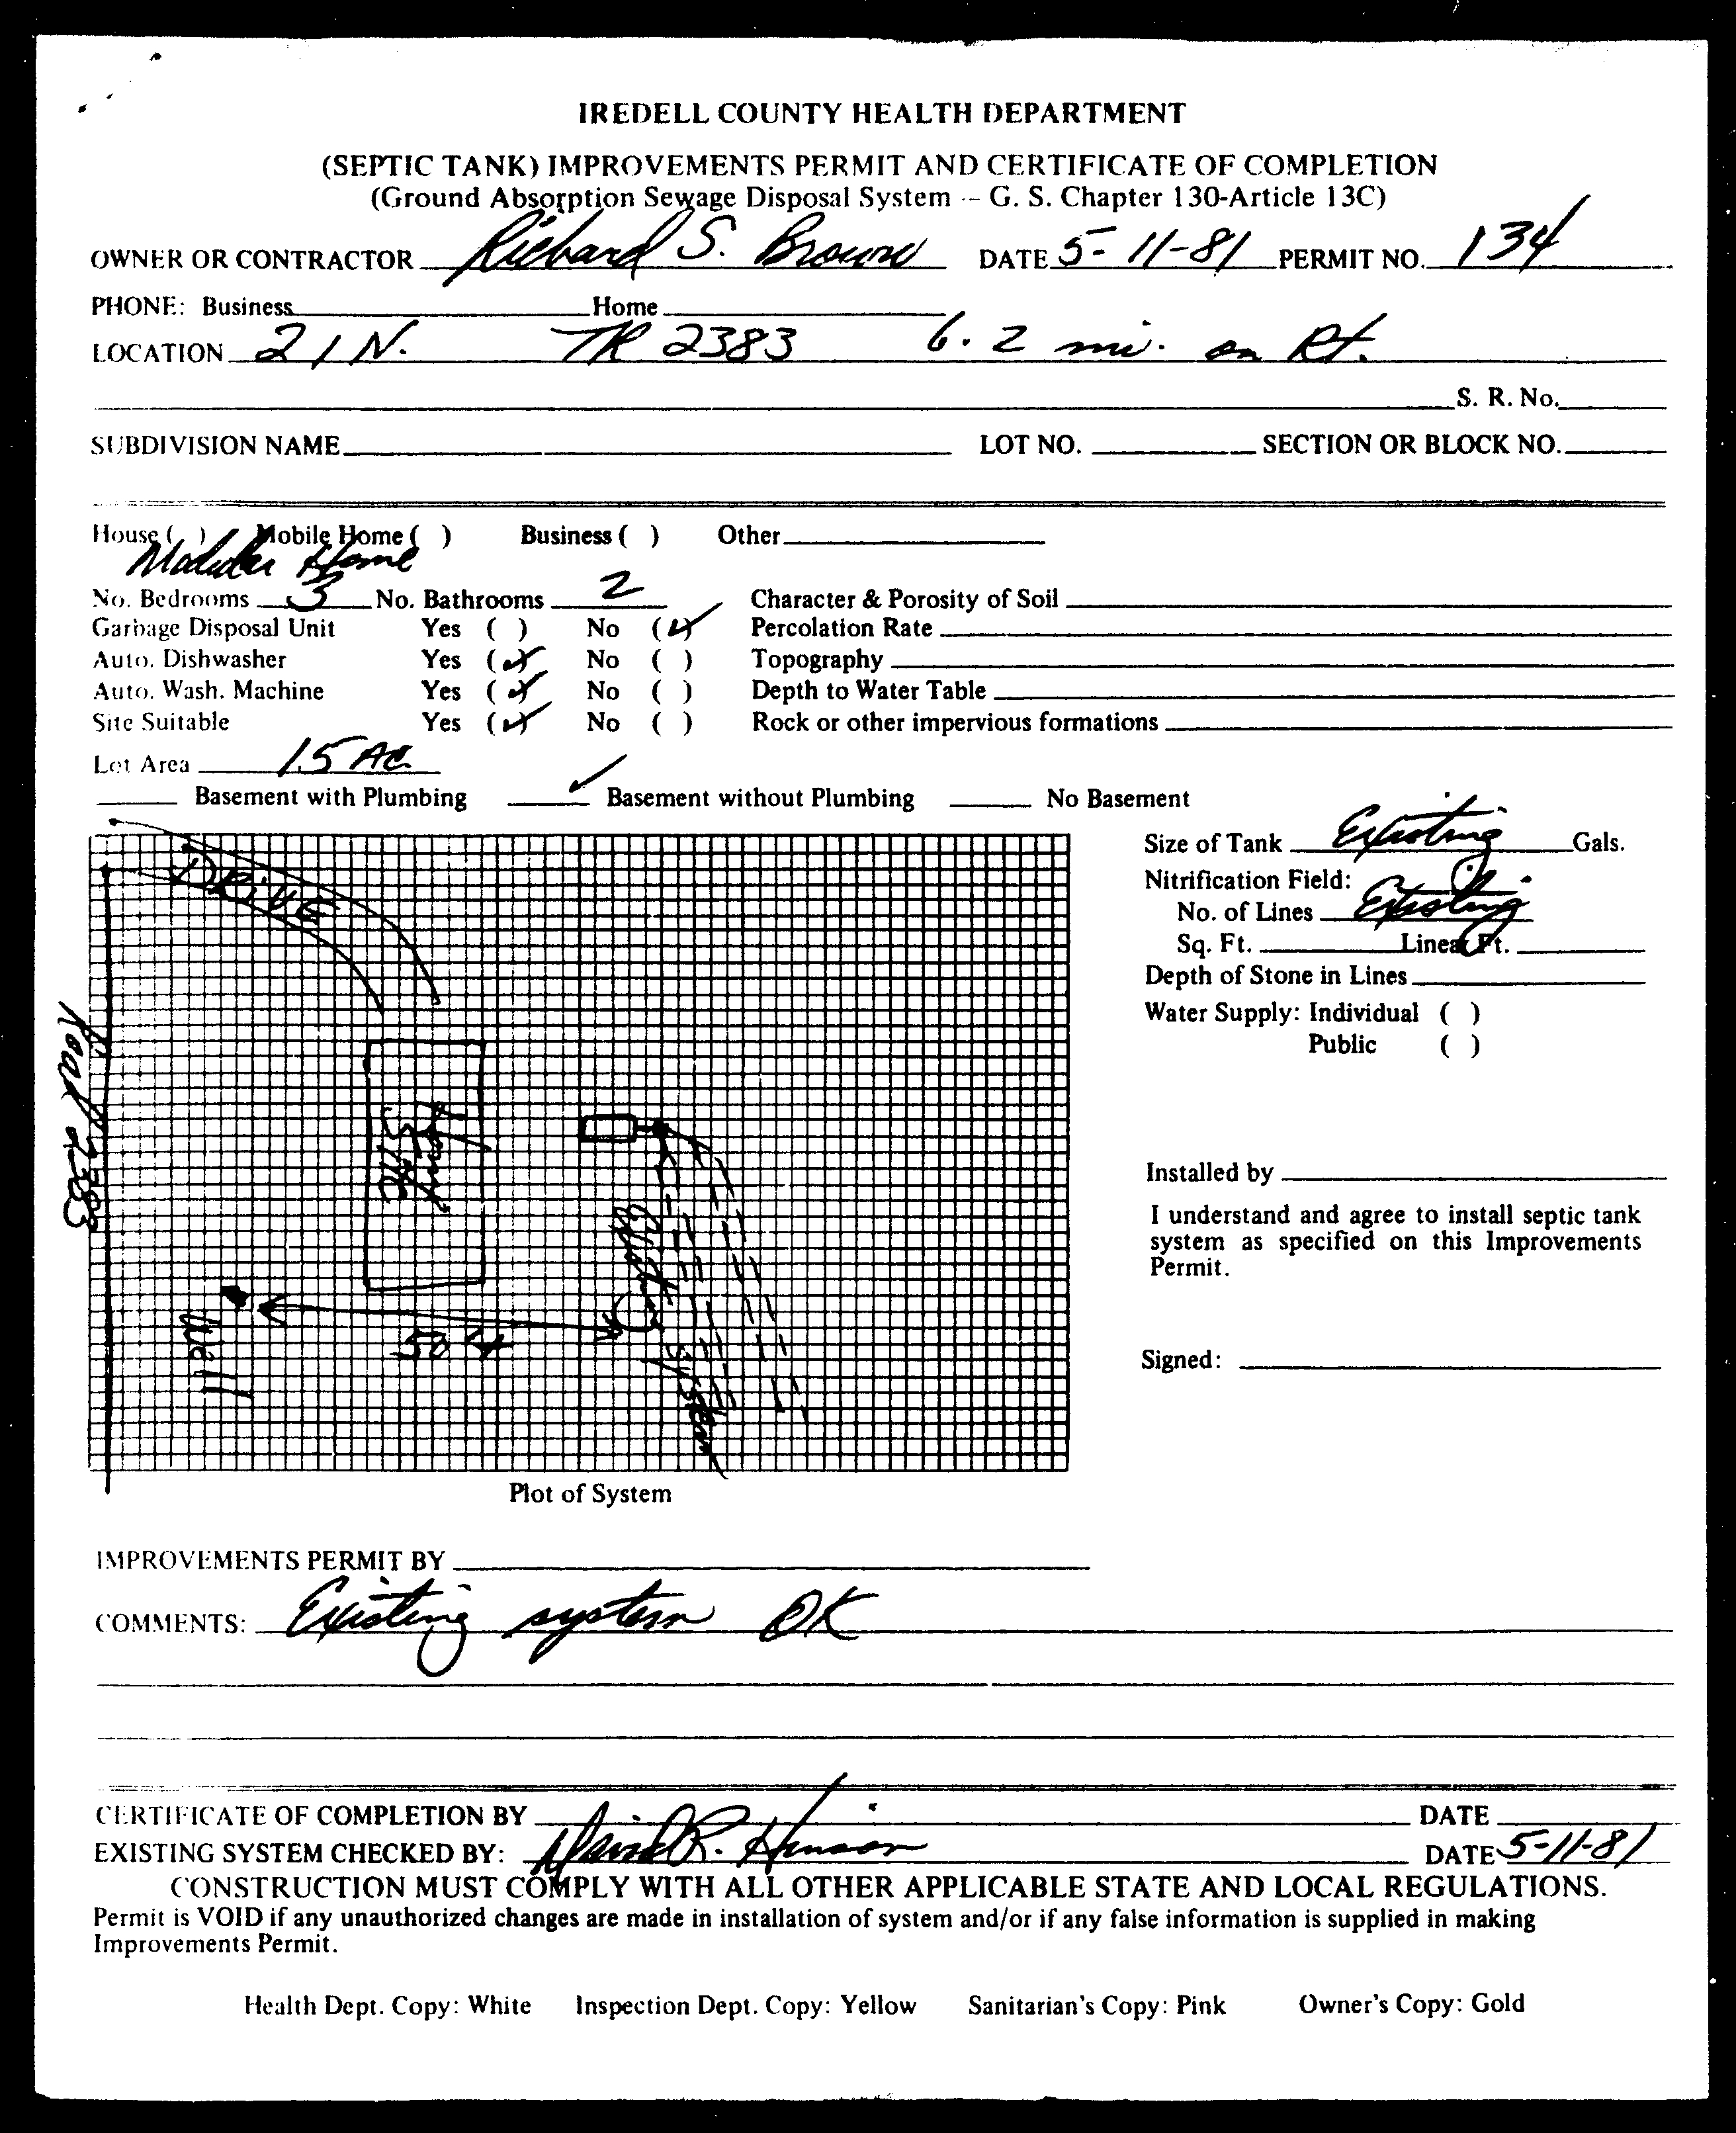 IREDELL COUNTY HEALTH DEPARTMENT
(SEPTIC TANK) IMPROVEMENTS PERMIT AND CERTIFICATE OF COMPLETION
(Ground Absorption Sewage Disposal System -- G. S. Chapter 130-Article 13C)
OWNER OR CONTRACTOR Richard S. Brown DATE 5-11-81 PERMIT NO. 134
PHONE: Business Home
LOCATION 21 N. TR 2383 6.2 mi. on Rt.
S. R. No.
SUBDIVISION NAME LOT NO. SECTION OR BLOCK NO.
House ( ) Mobile Home ( ) Business ( ) Other
Modular Home
No. Bedrooms 3 No. Bathrooms 2 Character & Porosity of Soil
Garbage Disposal Unit Yes ( ) No (✓) Percolation Rate
Auto. Dishwasher Yes (✓) No ( ) Topography
Auto. Wash. Machine Yes (✓) No ( ) Depth to Water Table
Site Suitable Yes (✓) No ( ) Rock or other impervious formations
Lot Area 15 AC.
Basement with Plumbing ✓ Basement without Plumbing No Basement
Size of Tank Existing Gals.
Nitrification Field:
No. of Lines Existing
Sq. Ft. Linear Ft.
Depth of Stone in Lines
Water Supply: Individual ( )
Public ( )
Installed by
I understand and agree to install septic tank
system as specified on this Improvements
Permit.
Signed:
DRIVE
Road 2383
Site
Well
50
System
Plot of System
IMPROVEMENTS PERMIT BY
COMMENTS: Existing system OK
CERTIFICATE OF COMPLETION BY DATE
EXISTING SYSTEM CHECKED BY: David R. Hinson DATE 5-11-81
CONSTRUCTION MUST COMPLY WITH ALL OTHER APPLICABLE STATE AND LOCAL REGULATIONS.
Permit is VOID if any unauthorized changes are made in installation of system and/or if any false information is supplied in making
Improvements Permit.
Health Dept. Copy: White Inspection Dept. Copy: Yellow Sanitarian's Copy: Pink Owner's Copy: Gold